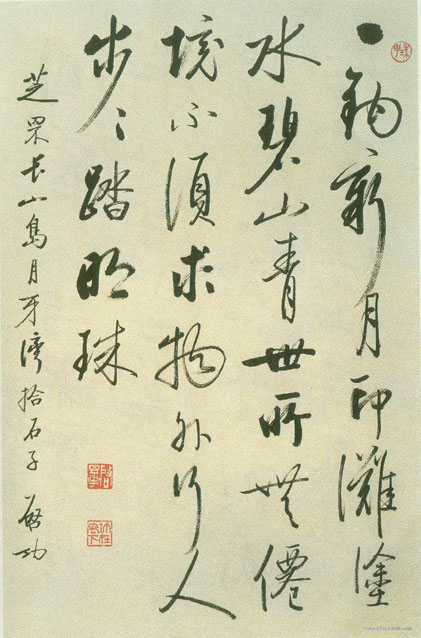 一鈎新月印灘塗
水碧山青世所無僊
境不須求物外行人
步々踏明珠
芝罘長山島月牙灣拾石子 啓功